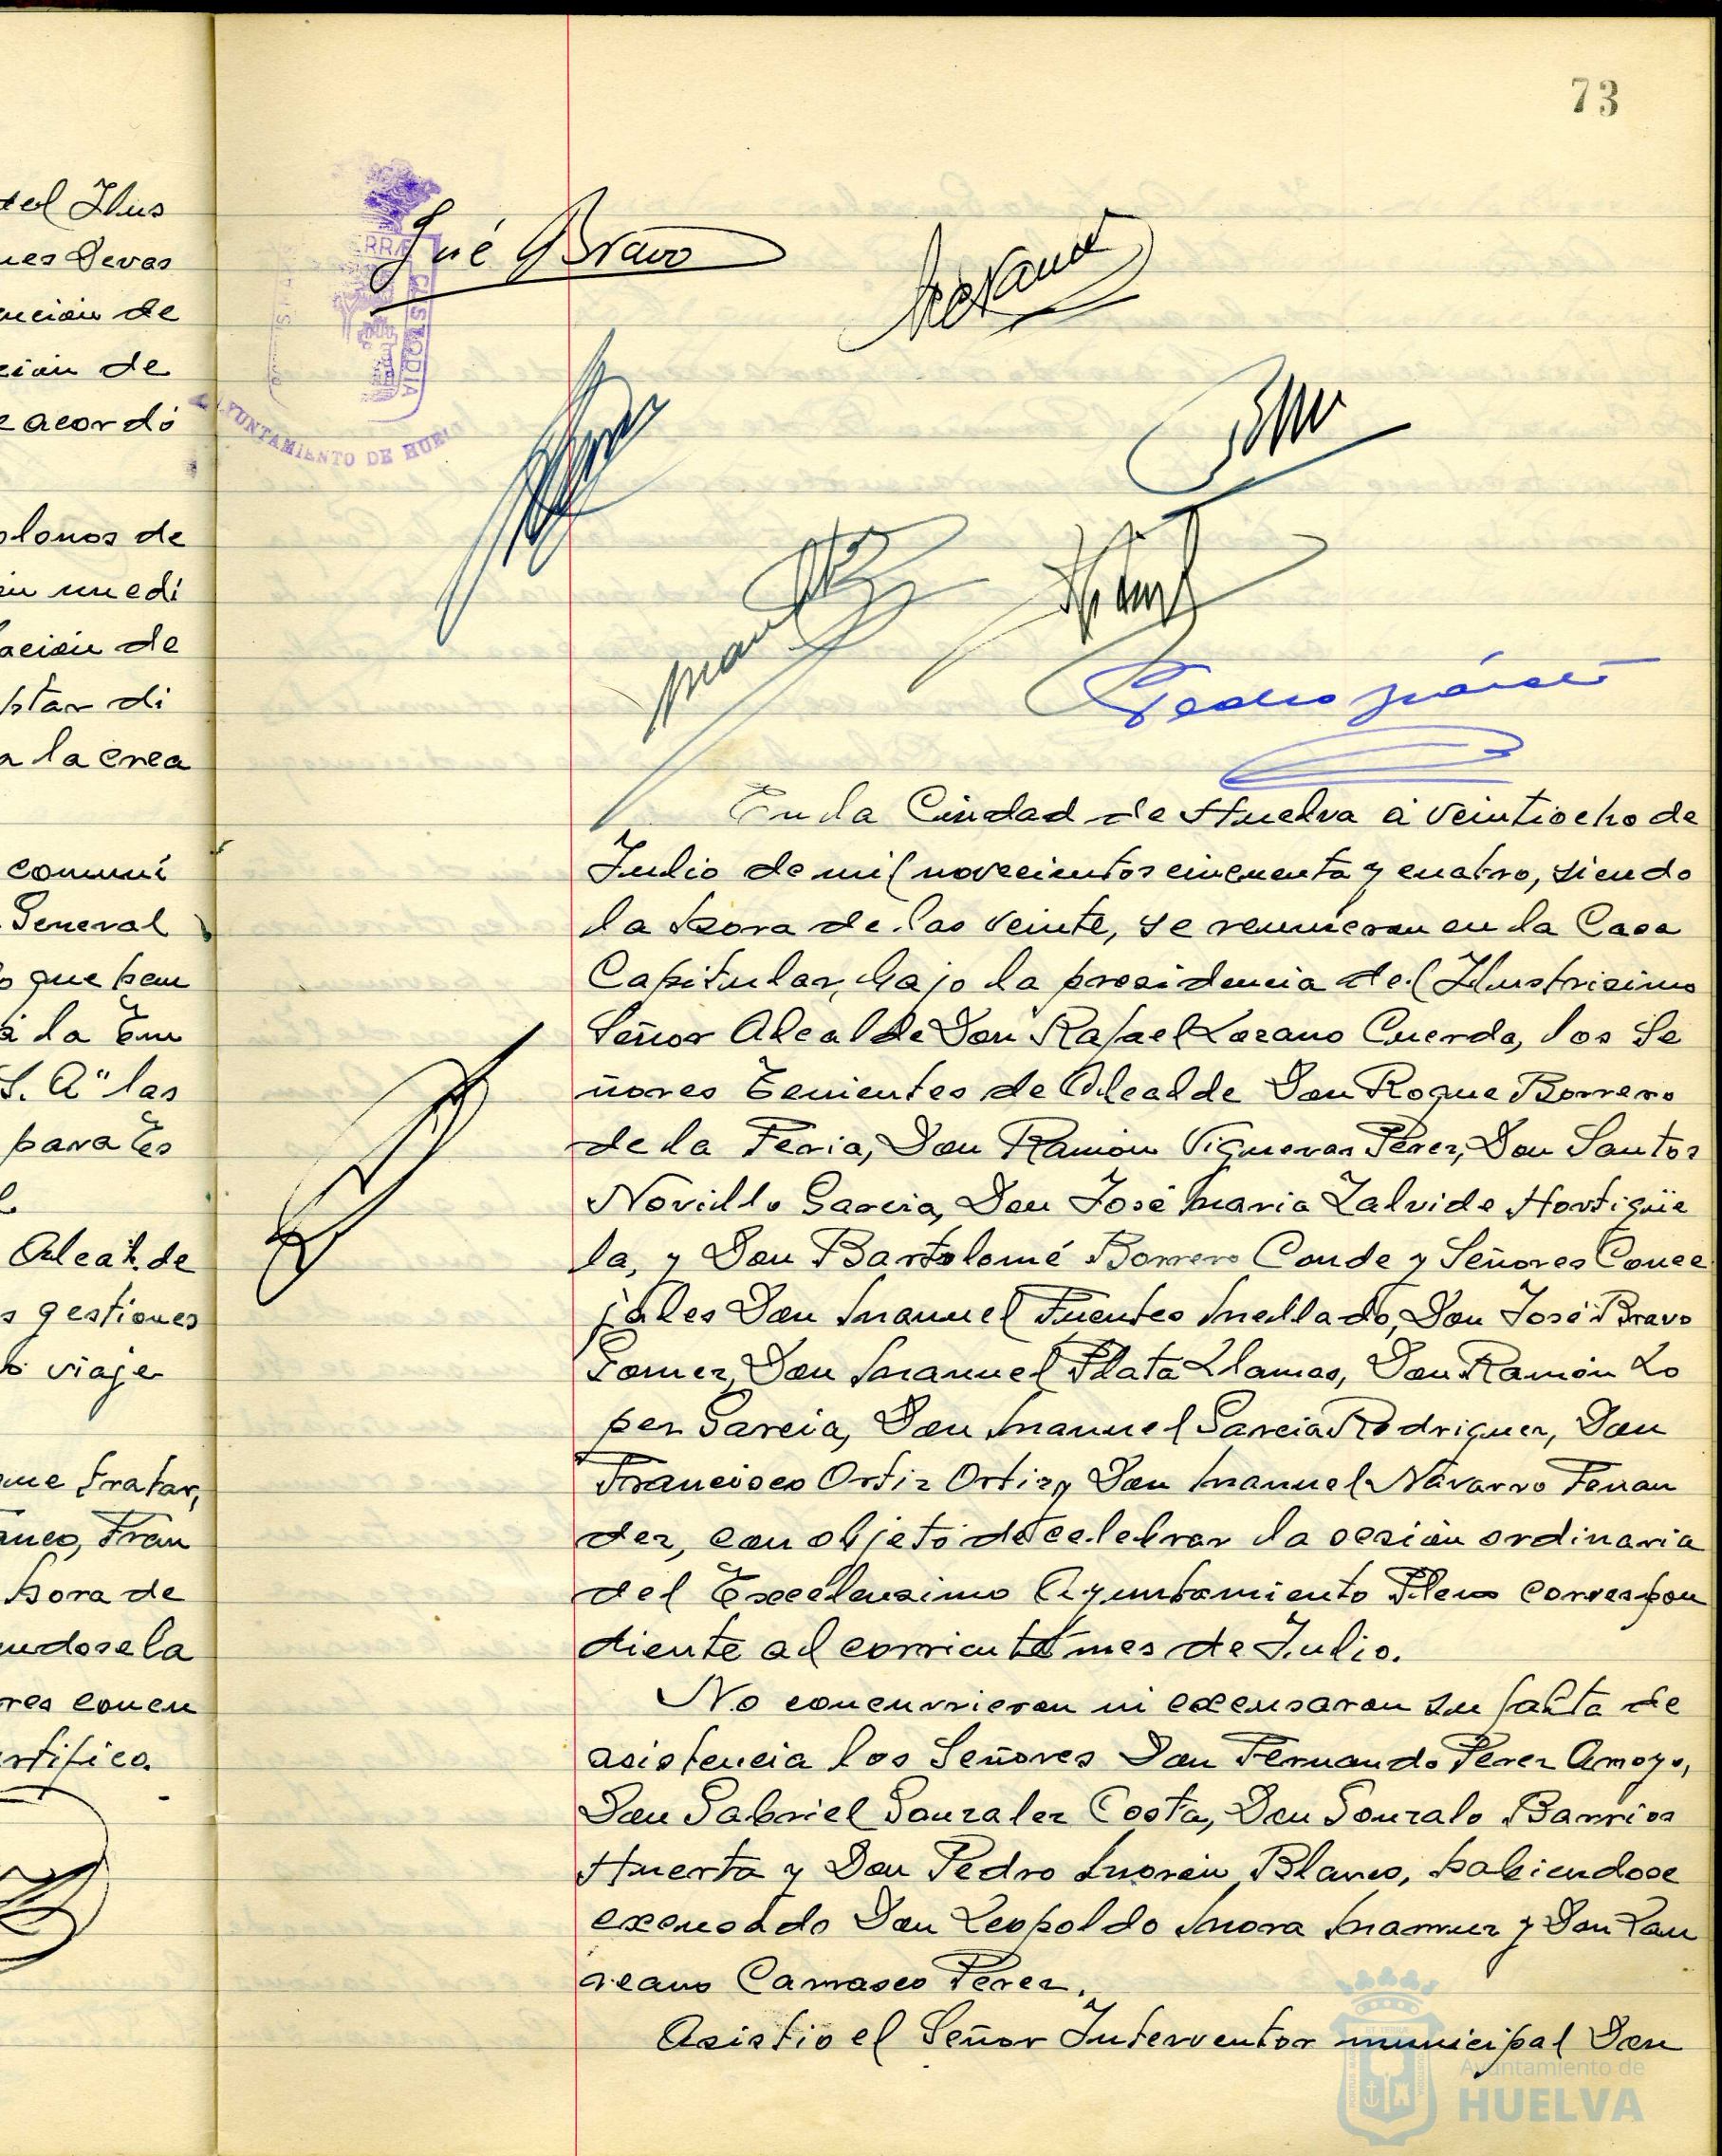 73
tel Ilus
nes Devas
de
de
acordó
de
de
di
a la crea
comuni
General
que pen
á la Em
S. A" las
para Es
Alcalde
s gestiones
viaje
que tratar,
Fran
hora de
ndose la
res concu
rtifico.
José Bravo
RRAE
CUSTODIA
AYUNTAMIENTO DE HUELVA
En la Ciudad de Huelva á veintiocho de
Julio de mil novecientos cincuenta y cuatro, siendo
la hora de las veinte, se reunieron en la Casa
Capitular, bajo la presidencia del Ilustrisimo
Señor Alcalde Don Rafael Lozano Cuerda, los Se
ñores Tenientes de Alcalde Don Roque Borrero
de la Feria, Don Ramón Vigueras Pérez, Don Santos
Novillo García, Don José María Zalvide Hortigüe
la, y Don Bartolomé Borrero Conde y Señores Conce
jales Don Manuel Fuentes Mellado, Don José Bravo
Gomez, Don Manuel Plata Llamas, Don Ramón Lo
pez Garcia, Don Manuel Garcia Rodriguez, Don
Francisco Ortiz Ortiz y Don Manuel Navarro Fernan
dez, con objeto de celebrar la sesión ordinaria
del Excelensimo Ayuntamiento Pleno correspon
diente al corriente mes de Julio.
No concurrieron ni excusaron su falta de
asistencia los Señores Don Fernando Perez Arroyo,
Don Gabriel Gonzalez Costa, Don Gonzalo Barrios
Huerta y Don Pedro Morón Blanco, habiendose
excusado Don Leopoldo Mora Mannuz y Don Lau
reano Carrasco Perez.
Asistio el Señor Interventor municipal Don
Ayuntamiento de
HUELVA